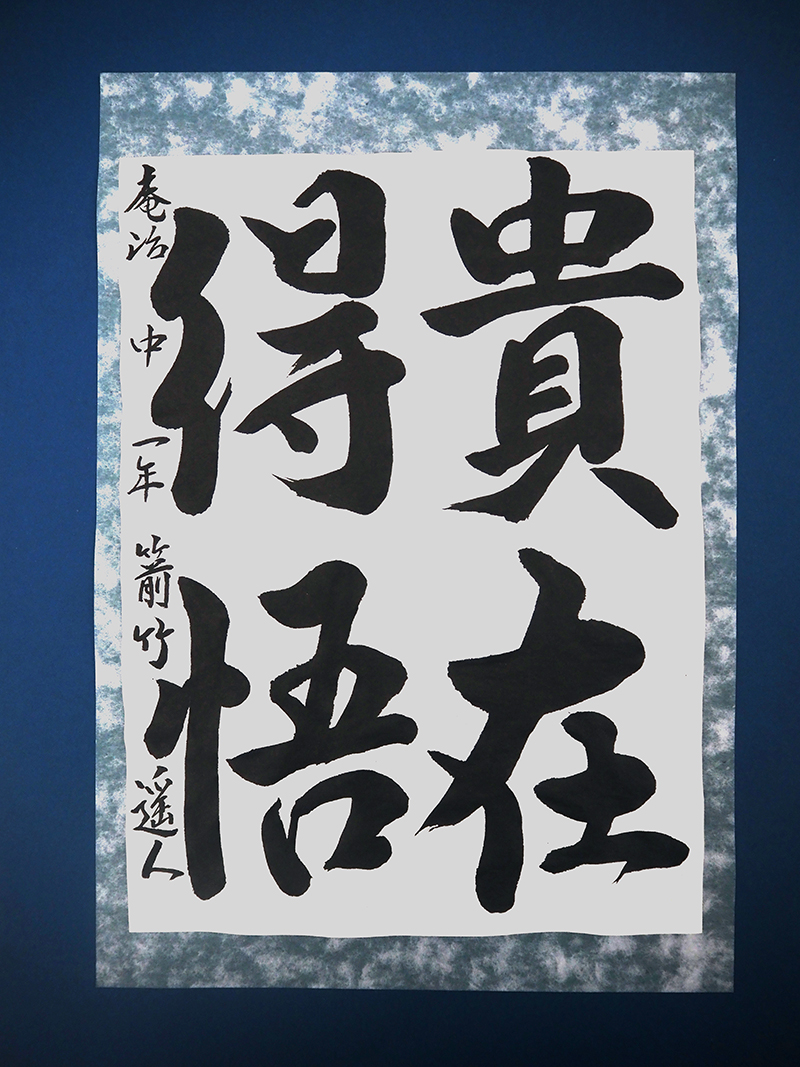 貴在
得悟
庵治中一年箭竹遥人